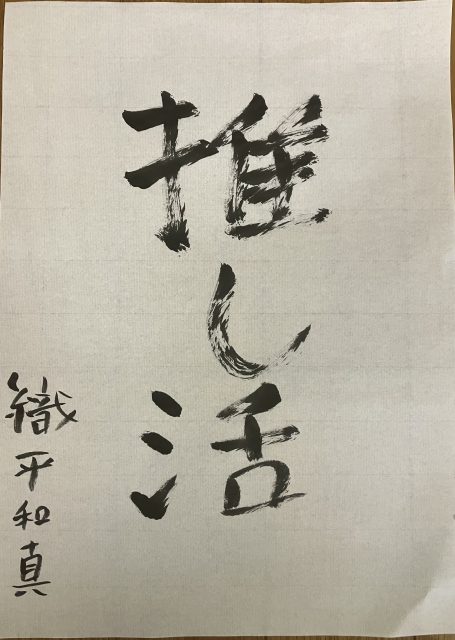 推し活
織平和真